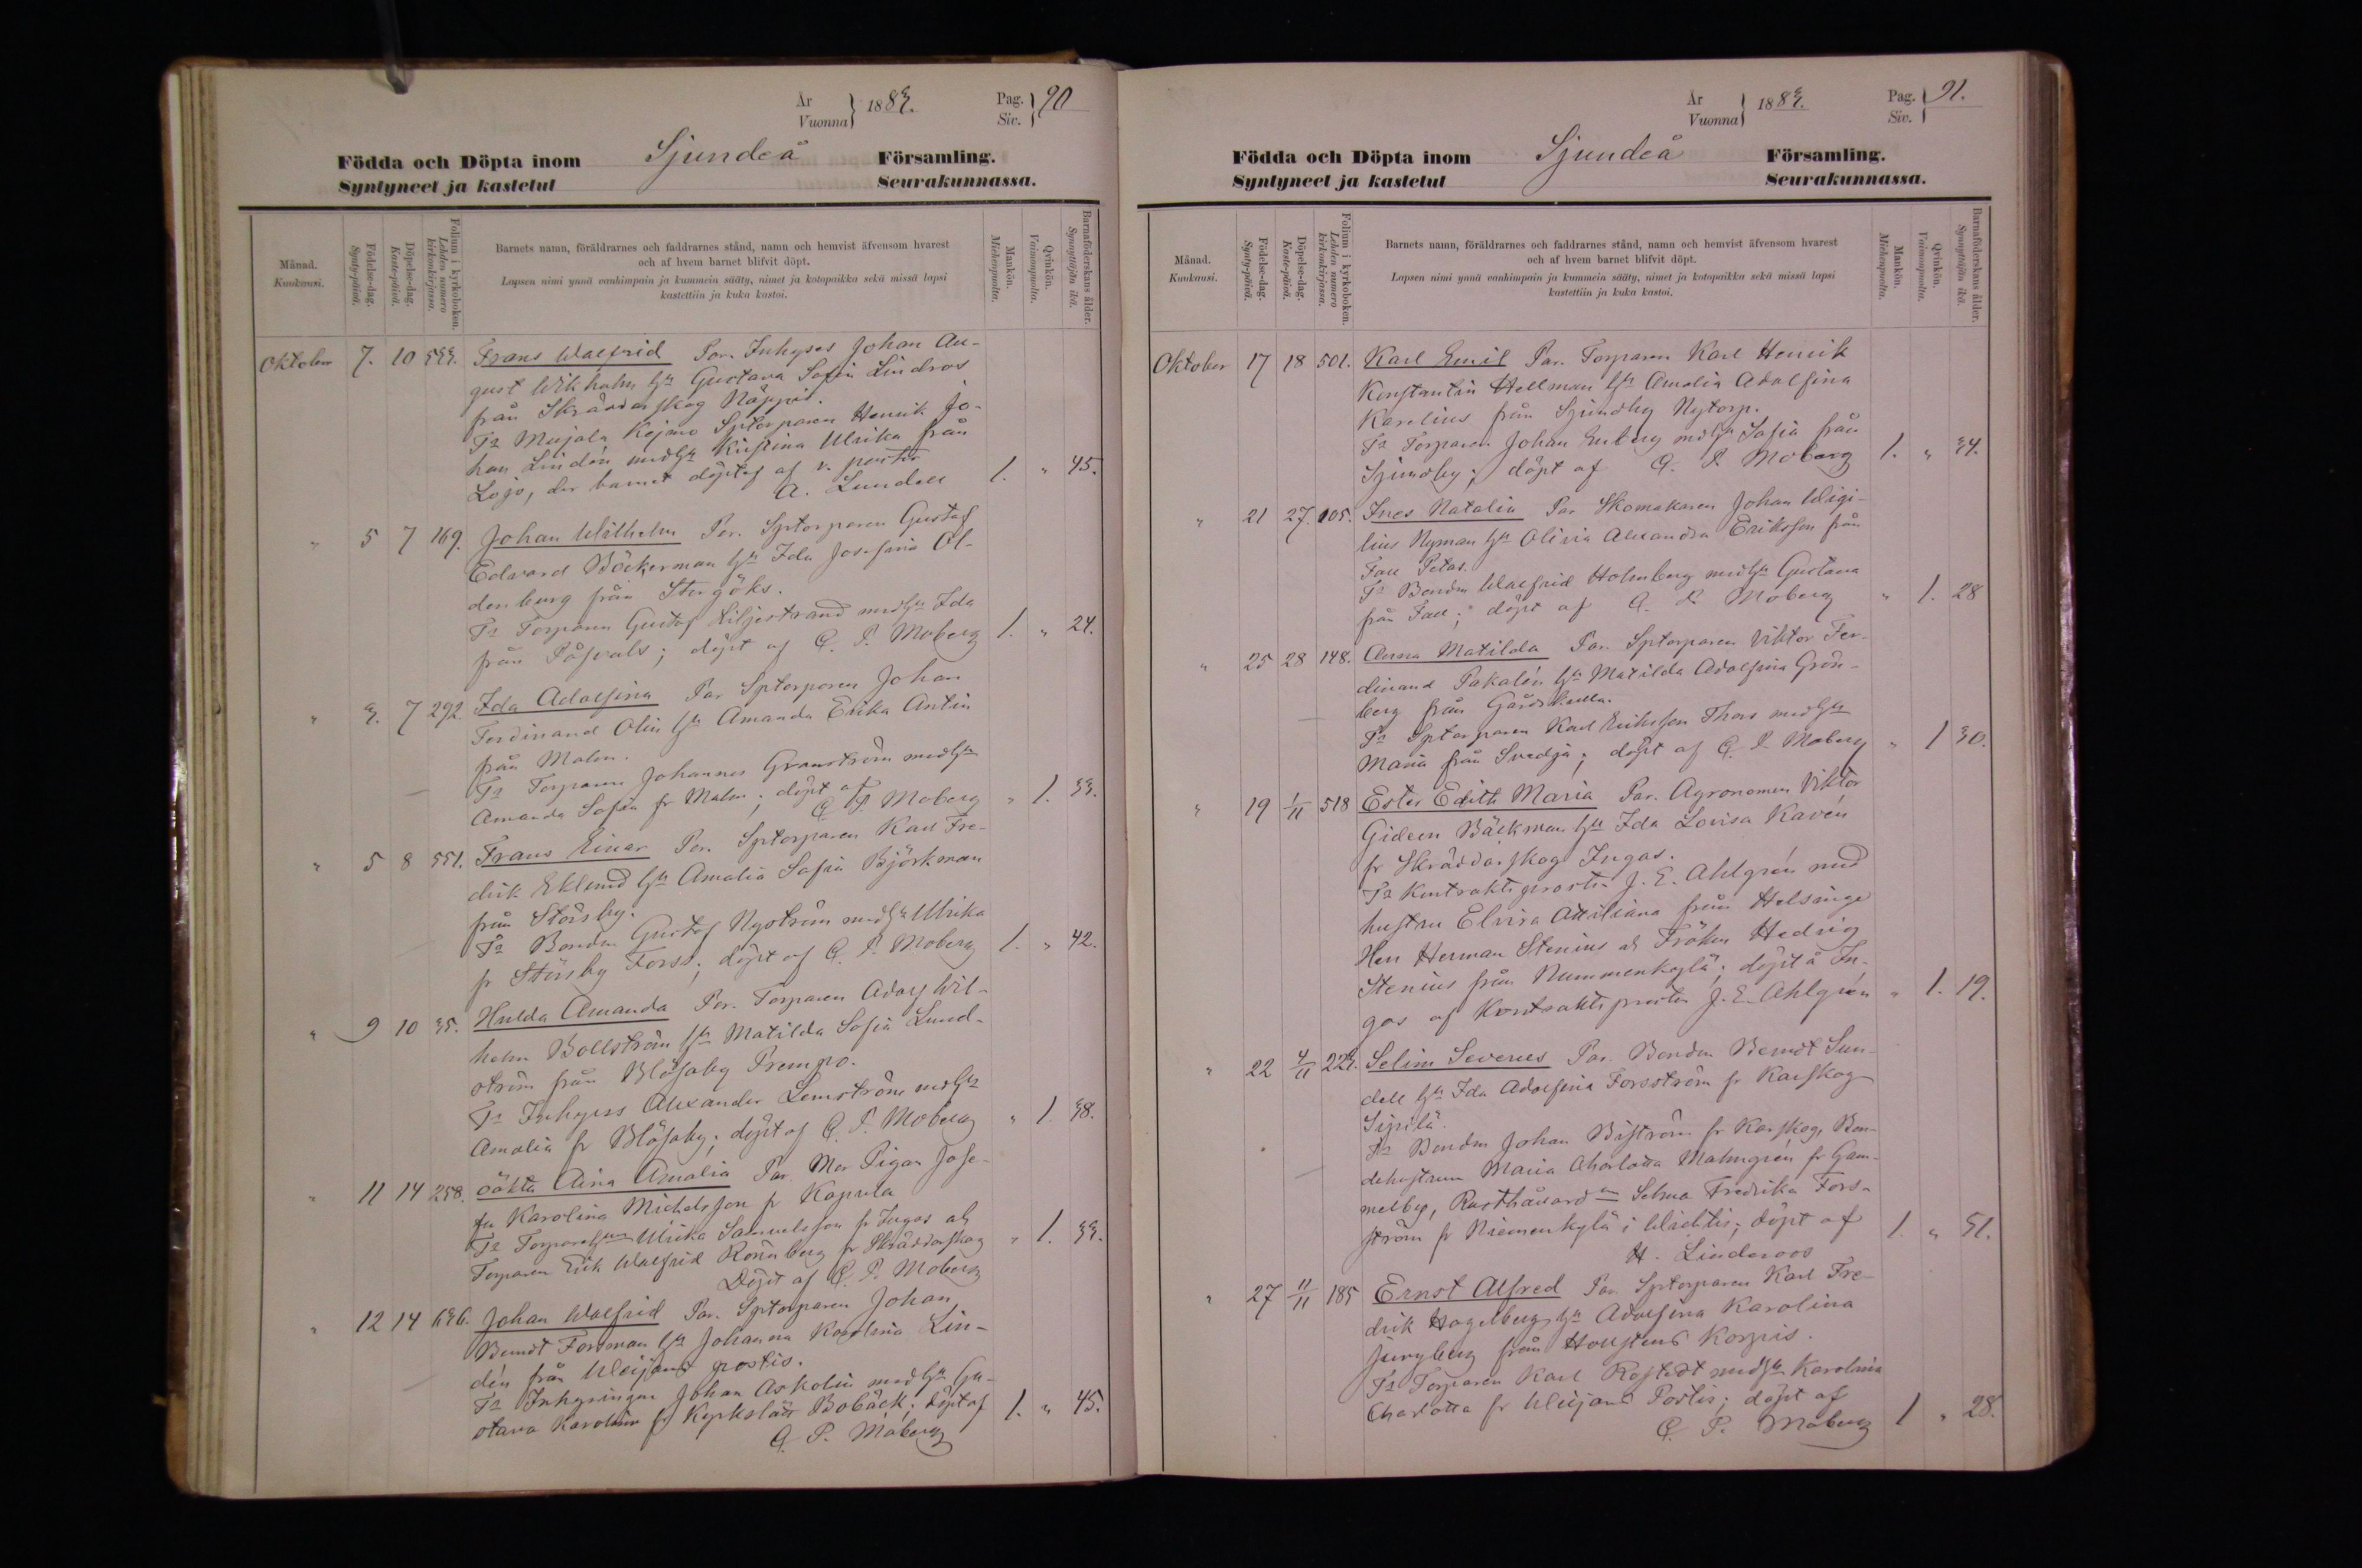 År
Vuonna } 1883.
Pag.
Siv. } 90
Födda och Döpta inom Sjundeå Församling.
Syntyneet ja kastetut Seurakunnassa.
Månad.
Kuukausi.
Födelse-dag.
Synty-päivä.
Döpelse-dag.
Kaste-päivä.
Folium i kyrkoboken.
Lehden numero kirkonkirjassa.
Barnets namn, föräldrarnes och faddrarnes stånd, namn och hemvist äfvensom hvarest
och af hvem barnet blifvit döpt.
Lapsen nimi ynnä vanhimpain ja kummein sääty, nimet ja kotopaikka sekä missä lapsi
kastettiin ja kuka kastoi.
Mankön.
Miehenpuolta.
Qvinkön.
Vaimonpuolta.
Barnaföderskans ålder.
Synnyttäjän ikä.
Oktober 7. 10 533. Frans Walfrid Par. Inhyses Johan Au-
gust Wikholm hu Gustava Sofia Lindros
från Skräddarskog Näppis.
Fr Mujala Kejmo Sptorparen Henrik Jo-
han Lindén med hu Kristina Ulrika från
Lojo, der barnet döptes af v. pastor
A. Lundell 1. " 45.
" 5 7 169. Johan Wilhelm Par. Sptorparen Gustaf
Edvard Böckerman hu Ida Josefina Ol-
denburg från Stergöks.
Fr Torparen Gustaf Liljestrand med hu Ida
från Påfvals; döpt af G. P. Moberg 1. " 24.
" 3. 7 292. Ida Adolfina Par Sptorparen Johan
Ferdinand Olin hu Amanda Erika Antin
från Malm.
Fr Torparen Johannes Granström med hu
Amanda Sofia fr Malm; döpt af
G. P. Moberg " 1. 33.
" 5 8 551. Frans Einar Par. Sptorparen Karl Fre-
drik Eklund hu Amalia Sofia Björkman
från Störsby.
Fr Bonden Gustaf Nyström med hu Ulrika
fr Störsby Forss; döpt af G. P. Moberg 1. " 42.
" 9 10 35. Hulda Amanda Par. Torparen Adolf Wil-
helm Bollström hu Matilda Sofia Lund-
ström från Blåsaby Prempo.
Fr Inhyses Alexander Lemström med hu
Amalia fr Blåsaby; döpt af G. P. Moberg " 1. 38.
" 11 14 258. oäkta Aina Amalia Par. Mor Pigan Jose-
fa Karolina Michelsson fr Kopula
Fr Torparehun Ulrika Samuelsson fr Ingas och
Torparen Erik Walfrid Rönnberg fr Skräddarskog " 1. 33.
Döpt af G. P. Moberg
" 12 14 636. Johan Walfrid Par. Sptorparen Johan
Berndt Forsman hu Johanna Karolina Lin-
dén från Weijans postis.
Fr Inhysingen Johan Askolin med hu Gu-
stava Karolina fr Kyrkslätt Bobäck; döpt af 1. " 45.
G. P. Moberg
År
Vuonna } 1883.
Pag.
Siv. } 91.
Födda och Döpta inom Sjundeå Församling.
Syntyneet ja kastetut Seurakunnassa.
Månad.
Kuukausi.
Födelse-dag.
Synty-päivä.
Döpelse-dag.
Kaste-päivä.
Folium i kyrkoboken.
Lehden numero kirkonkirjassa.
Barnets namn, föräldrarnes och faddrarnes stånd, namn och hemvist äfvensom hvarest
och af hvem barnet blifvit döpt.
Lapsen nimi ynnä vanhimpain ja kummein sääty, nimet ja kotopaikka sekä missä lapsi
kastettiin ja kuka kastoi.
Mankön.
Miehenpuolta.
Qvinkön.
Vaimonpuolta.
Barnaföderskans ålder.
Synnyttäjän ikä.
Oktober 17 18 501. Karl Emil Par. Torparen Karl Henrik
Konstantin Hellman hu Amalia Adolfina
Karelius från Sjundby Nytorp.
Fr Torparen Johan Enberg med hu Sofia från
Sjundby; döpt af G. P. Moberg 1. " 34.
" 21 27. 105. Ines Natalia Par Skomakaren Johan Wigi-
lius Nyman hu Olivia Alexandra Eriksson från
Fall Petas.
Fr Bonden Walfrid Holmberg med hu Gustava
från Fall; döpt af G. P. Moberg " 1. 28
" 25 28 148. Anna Matilda Par. Sptorparen Viktor Fer-
dinand Pakalén hu Matilda Adolfina Grön-
berg från Gårdskulla.
Fr Sptorparen Karl Eriksson Thors med hu
Maria från Svedja; döpt af G. P. Moberg " 1 30.
" 19 1/11 518 Ester Edith Maria Par. Agronomen Viktor
Gideon Bäckman hu Ida Lovisa Kavén
fr Skräddarskog Ingas.
Fr Kontraktsprosten J. E. Ahlgrén med
hustru Elvira Attiliana från Helsinge
Herr Herman Stenius och Fröken Hedvig
Stenius från Nummenkylä; döpt å In-
gas af Kontraktsprosten J. E. Ahlgrén " 1. 19.
" 22 4/11 223. Selim Severus Par. Bonden Berndt Sun-
dell hu Ida Adolfina Forsström fr Karskog
Sipilä.
Fr Bonden Johan Biström fr Karskog, Bon-
dehustrun Maria Charlotta Malmgrén fr Gam-
melby, Rusthållared:n Selma Fredrika Fors-
ström fr Niemenkylä i Wichtis; döpt af 1. " 31.
H. Linderoos
" 27 11/11 185 Ernst Alfred Par. Sptorparen Karl Fre-
drik Hagelberg hu Adolfina Karolina
Jungberg från Hollstens Korpis.
Fr Torparen Karl Rostedt med hu Karolina
Charlotta fr Weijans Postis; döpt af
G. P. Moberg 1 " 28.